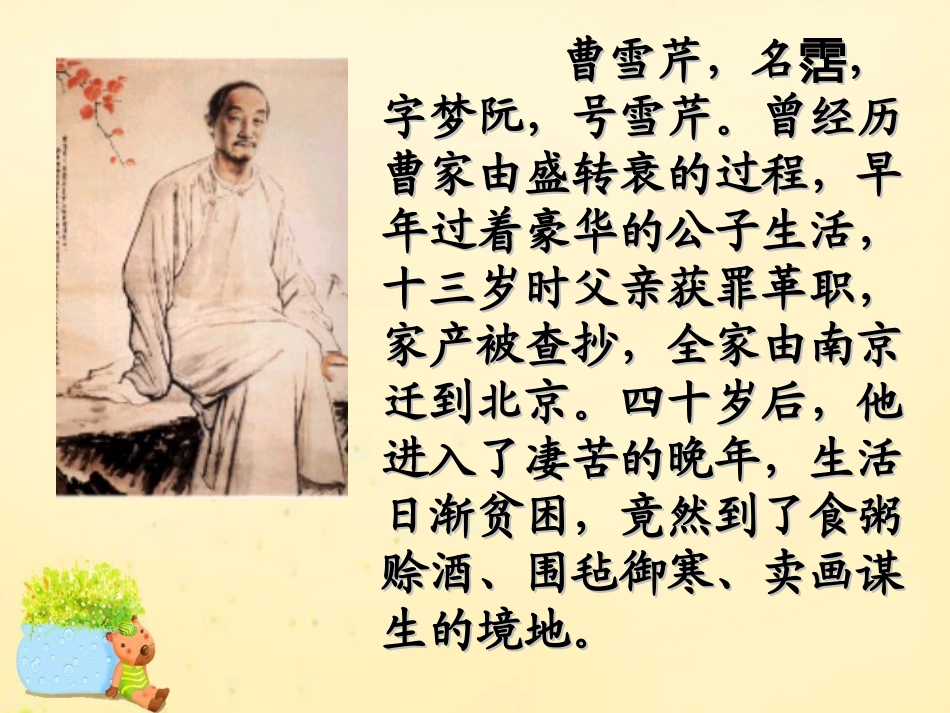 曹雪芹，名霑，
字梦阮，号雪芹。曾经历
曹家由盛转衰的过程，早
年过着豪华的公子生活，
十三岁时父亲获罪革职，
家产被查抄，全家由南京
迁到北京。四十岁后，他
进入了凄苦的晚年，生活
日渐贫困，竟然到了食粥
赊酒、围毡御寒、卖画谋
生的境地。